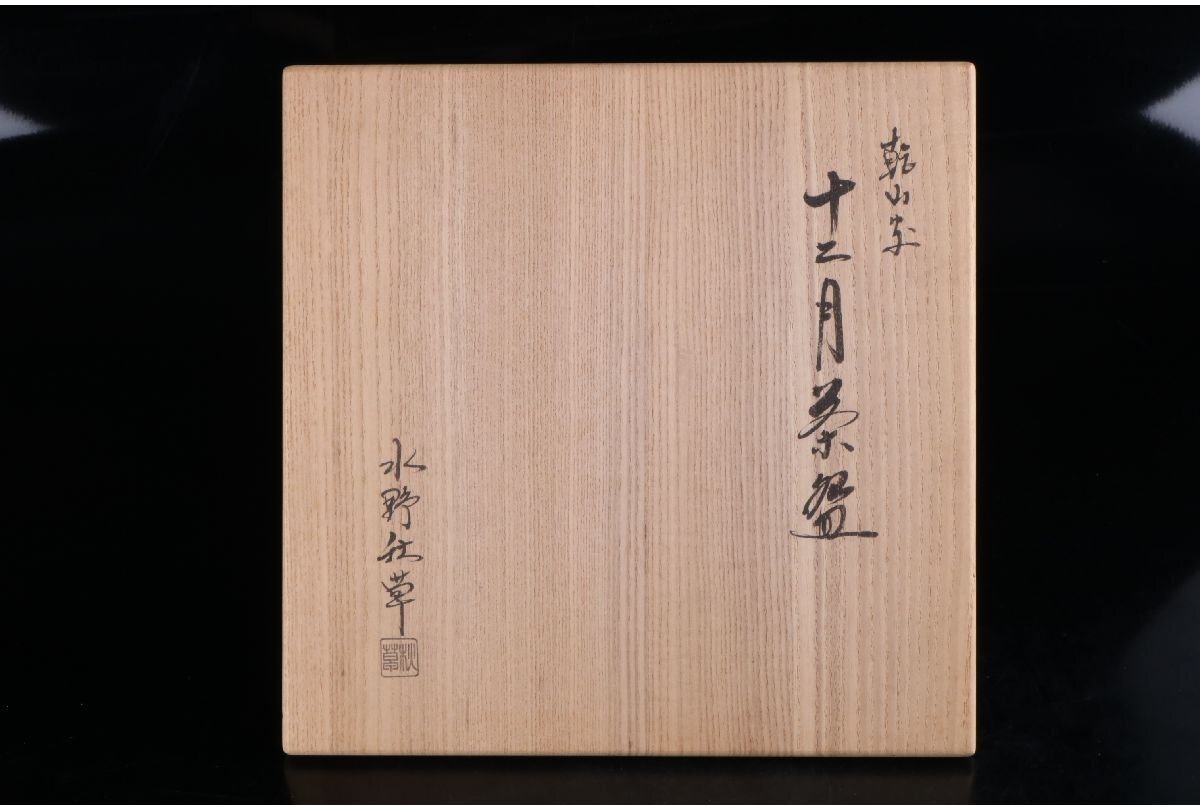 乾山写
十二月茶盌
水野秋草
秋草